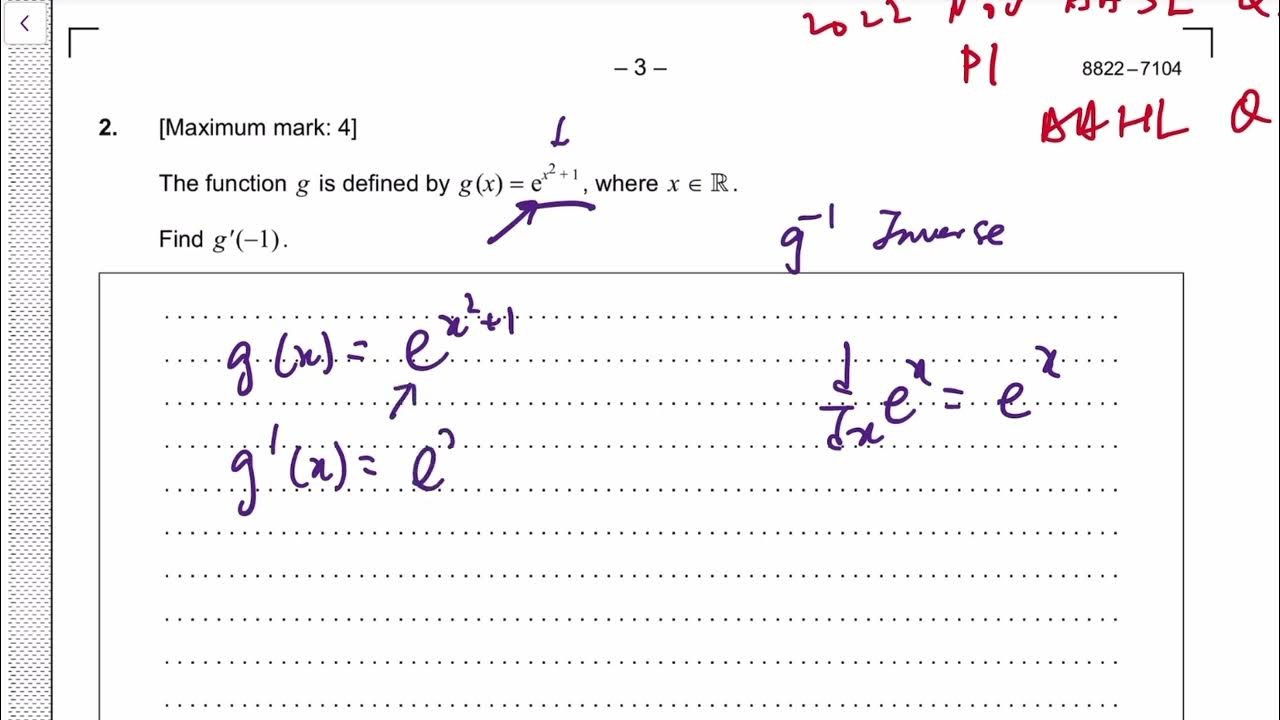 2022 Nov AASL Q
P1
– 3 –
8822–7104
AAHL Q
2. [Maximum mark: 4]
The function g is defined by g(x) = e^{x² + 1}, where x ∈ ℝ.
Find g′(−1).
g⁻¹ Inverse
g(x) = e^{x²+1}
d/dx e^x = e^x
g'(x) = e